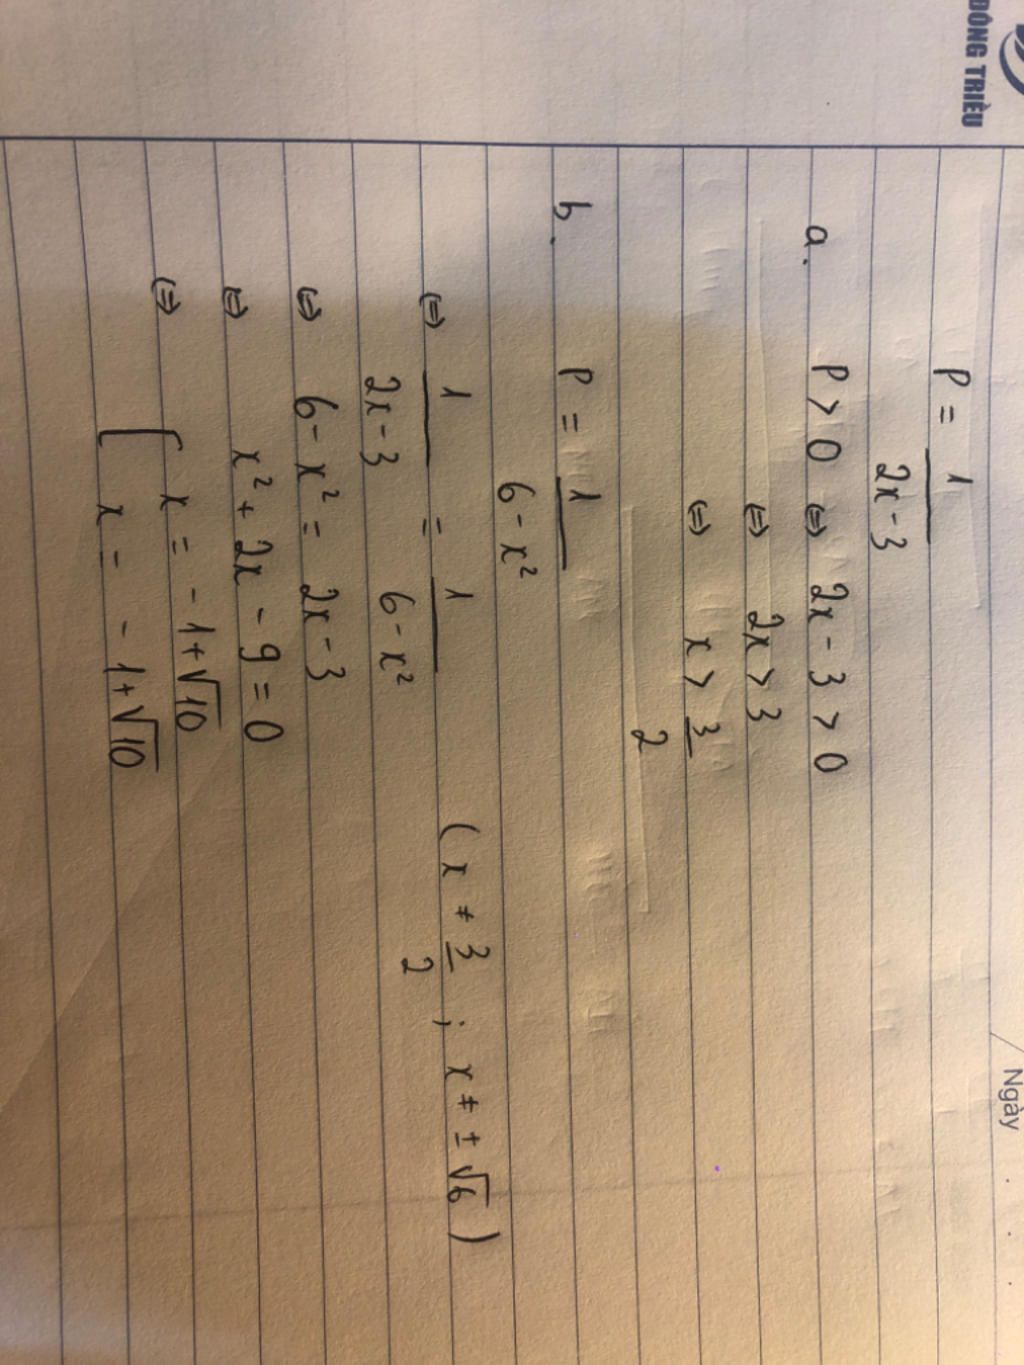 ĐÔNG TRIỀU
Ngày
P = 1/(2x-3)
a. P > 0 ⇔ 2x - 3 > 0
⇔ 2x > 3
⇔ x > 3/2
b. P = 1/(6-x²)
⇔ 1/(2x-3) = 1/(6-x²) (x ≠ 3/2 ; x ≠ ±√6)
⇔ 6 - x² = 2x - 3
⇔ x² + 2x - 9 = 0
⇔ [ x = -1+√10
x = -1+√10